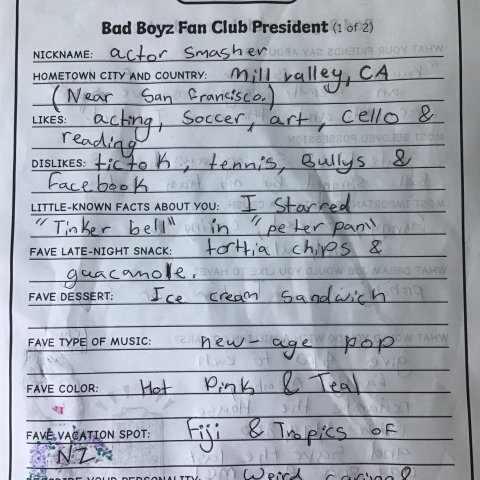 Bad Boyz Fan Club President (1 of 2)
NICKNAME: actor smasher
HOMETOWN CITY AND COUNTRY: Mill valley, CA
(Near San francisco.)
LIKES: "acting, Soccer, art, Cello &
reading
DISLIKES: tictok, tennis, Bullys &
Facebook
LITTLE-KNOWN FACTS ABOUT YOU: I Starred
"Tinker bell" in "peter pan"
FAVE LATE-NIGHT SNACK: torttia chips &
guacamole.
FAVE DESSERT: Ice cream sandwich
FAVE TYPE OF MUSIC: new-age pop
FAVE COLOR: Hot Pink & Teal
FAVE VACATION SPOT: Fiji & Tropics of
NZ
DESCRIBE YOUR PERSONALITY: Weird caring &